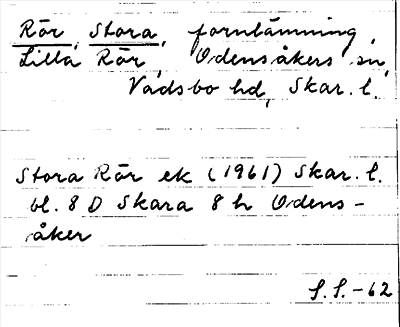 Rör, Stora, fornlämning,
Lilla Rör, Odensåkers sn,
Vadsbo hd, Skar. l.
Stora Rör ek (1961) Skar. l.
bl. 8 D Skara 8 h Odens-
åker
S.S.-62